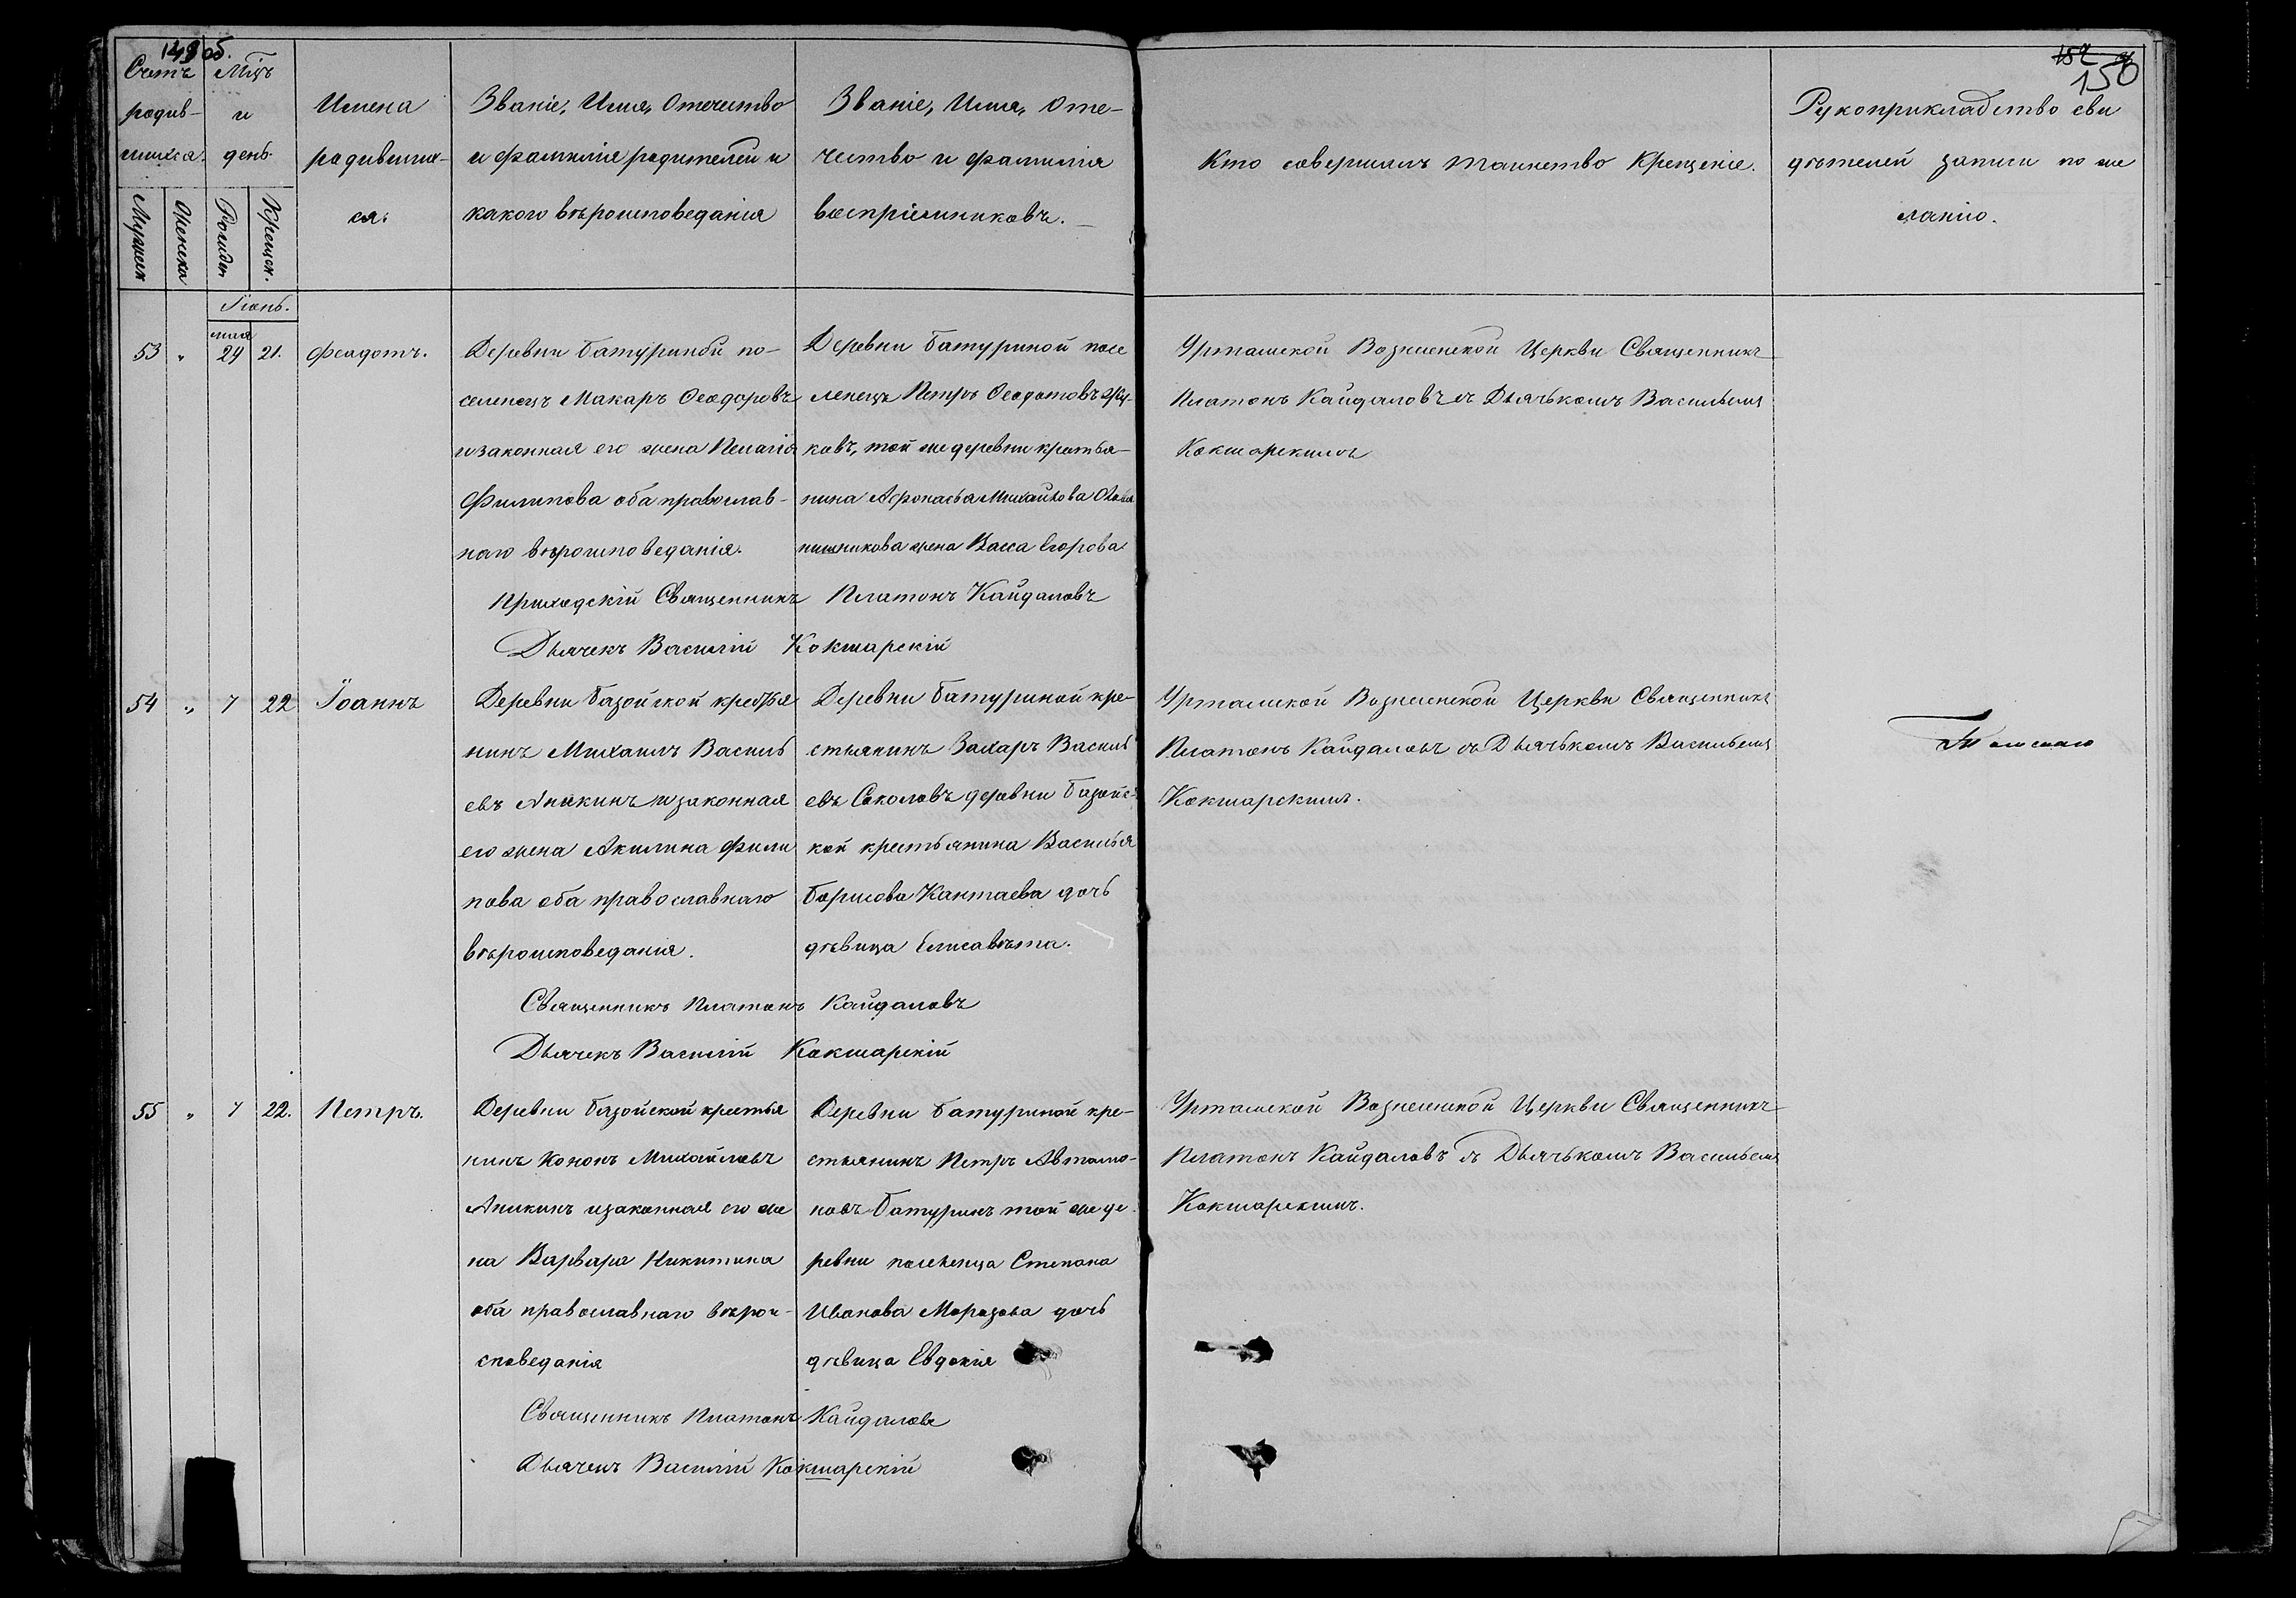 149 об.
152
150
Счетъ родив-шихся.
Мцъ и день.
Имена
родивших-
ся.
Званіе, Имя, Отечество
и фамилія родителей и
какого вѣроисповеданія
Званіе, Имя, Оте-
чество и фамилія
воспріемниковъ.
Кто совершалъ таинство Крещеніе.
Рукоприкладство сви
дѣтелей записи по же
ланію.
Мужеск
Женска
Рожден
Крещен.
Іюнь.
мая
53 " 24 21. Феодотъ.
Деревни Батуриной по-
селенецъ Макаръ Ѳеодоровъ
и законная его жена Пелагія
Филипова оба православ-
наго вѣроисповеданія.
Деревни Батуриной посе
ленецъ Петръ Ѳеодотовъ Жу-
ковъ, той же деревни крестья-
нина Афонасья Михайлова
жена Васса Егорова
Уртамской Вознесенской Церкви Священникъ
Платонъ Кайдаловъ съ Дьячькомъ Васильемъ
Кокшарскимъ
Приходскій Священникъ Платонъ Кайдаловъ
Дьячекъ Василій Кокшарскій
54 " 7 22 Іоаннъ
Деревни Базойской крестья
нинъ Михаилъ Василь
евъ Аникинъ и законная
его жена Акилина Фили
пова оба православнаго
вѣроисповеданія.
Деревни Батуриной кре-
стьянинъ Захаръ Василь
евъ Соколовъ деревни Базойс-
кой крестьянина Василья
Борисова Кантаева дочь
дѣвица Елисавѣта.
Уртамской Вознесенской Церкви Священникъ
Платонъ Кайдаловъ съ Дьячькомъ Васильемъ
Кокшарскимъ.
Священникъ Платонъ Кайдаловъ
Дьячекъ Василій Кокшарскій
55 " 7 22. Петръ.
Деревни Базойской крестья
нинъ Кононъ Михайловъ
Аникинъ и законная его же
на Варвара Никитина
оба православнаго вѣрои-
споведанія
Деревни Батуриной кре-
стьянинъ Петръ Автамо-
новъ Батуринъ той же де
ревни поселенца Степана
Иванова Морозова дочь
дѣвица Евдокія
Уртамской Вознесенской Церкви Священникъ
Платонъ Кайдаловъ съ Дьячькомъ Васильемъ
Кокшарскимъ.
Священникъ Платонъ Кайдаловъ
Дьячекъ Василій Кокшарскій